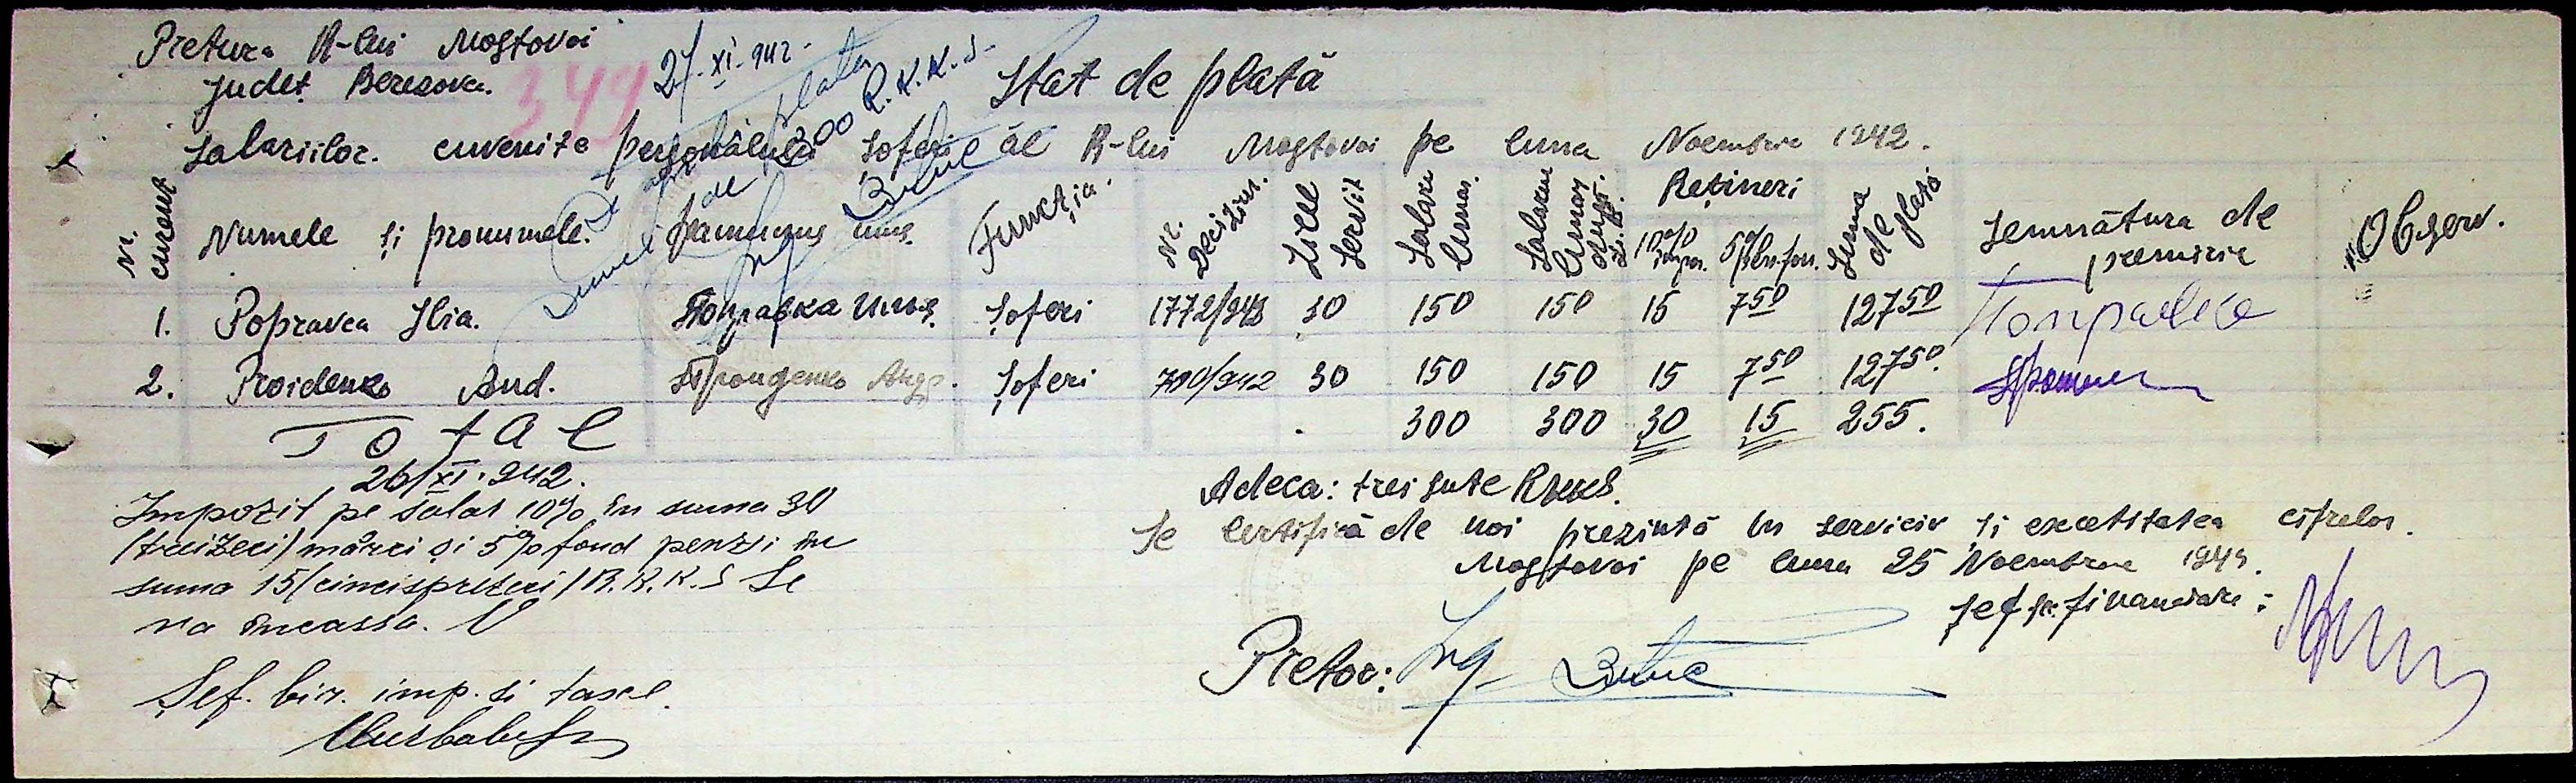 Pretura R-lui Mostovoi
Judeţ Beresovca.
349
27-XI-942-
plata
de 300 R.K.K.S-
Stat de plată
Salariilor cuvenite personalului şoferi al R-lui Mostovoi pe luna Noembrie 1942.
Nr. curent
Numele şi pronumele.
Funcţia.
Nr. Deciziun.
Zile Servit
Salariu lunar.
Salariu lunar după
Reţineri
10% impoz.
5% pen. fon.
Suma de plată
Semnătura de primire
Observ.
1. Popravca Ilia. Поправка Илья. Şoferi 1772/943 30 150 150 15 7 50 127 50 Поправка
2. Proidenco And. Пройденко Андр. Şoferi 700/942 30 150 150 15 7 50 127 50
Total 300 300 30 15 255.
26/XI.942.
Impozit pe salar 10% în suma 30
(treizeci) mărci şi 5% fond penzii în
suma 15 (cincisprezeci) R.K.K.S Se
va încassa.
Şef. bir. imp. si taxe
Adeca: trei sute RKKS.
Se certifică de noi prezintă in serviciu şi exactitatea cifrelor.
Mostovoi pe luna 25 Noembrie
Şef se. financiare:
Pretor: Ing